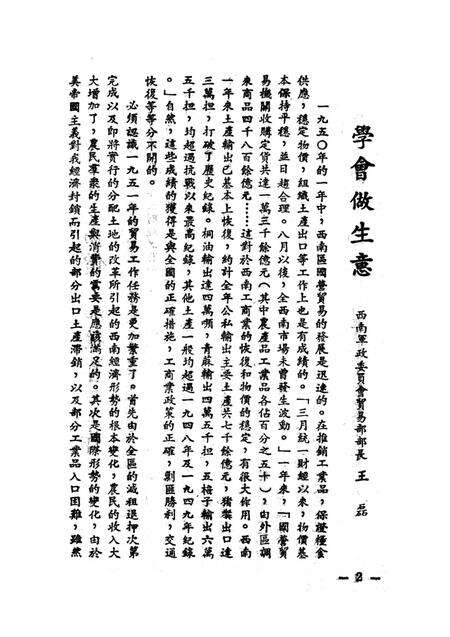 學會做生意
西南軍政委員會貿易部部長 王磊
一九五〇年的一年中，西南區國營貿易的發展是迅速的。在推銷工業品，保證糧食
供應，穩定物價，組織土產出口等工作上也是有成績的。「三月統一財經以來，物價基
本保持平穩，並日趨合理。八月以後，全西南市場未曾發生波動。」一年來，「國營貿
易機關收購定貨共達一萬三千餘億元（其中農產品工業品各佔百分之五十），由外區調
來商品四千八百餘億元……這對於西南工商業的恢復和物價的穩定，有很大作用。西南
一年來土產輸出已基本上恢復，約計全年公私輸出主要土產共七千餘億元，豬鬃出口達
三萬担，打破了歷史紀錄。桐油輸出達四萬噸，青麻輸出四萬五千担，五棓子輸出六萬
五千担，均超過抗戰以來最高紀錄，其他土產一般均超過一九四八年及一九四九年紀錄
。」自然，這些成績的獲得是與全國的正確措施，工商業政策的正確，剿匪勝利，交通
恢復等等分不開的。
必須認識一九五一年的貿易工作任務是更加繁重了。首先由於全區的減租退押次第
完成以及即將實行的分配土地的改革所引起的西南經濟形勢的根本變化，農民的收入大
大增加了，農民羣衆的生產與消費的需要是應該滿足的。其次是國際形勢的變化，由於
美帝國主義對我經濟封鎖而引起的部分出口土產滯銷，以及部分工業品入口困難，雖然
— 2 —